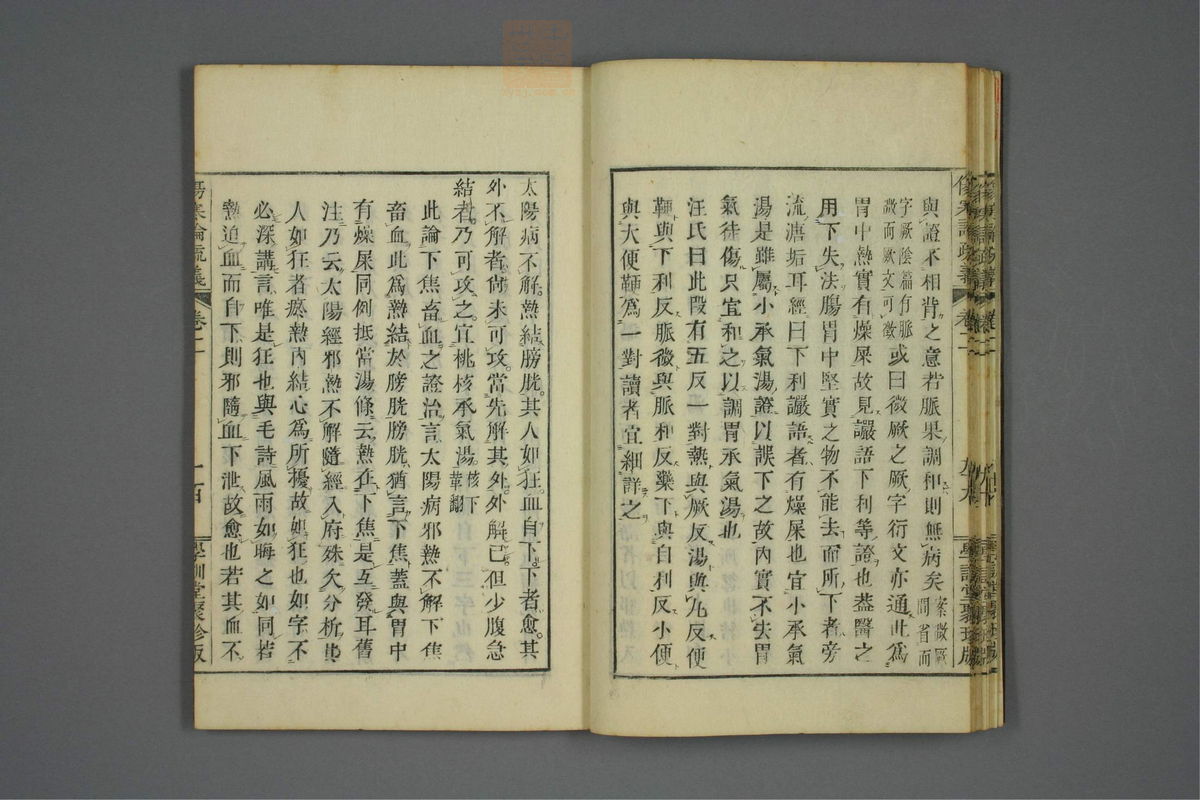 與證不相背之意若脈果調和則無病矣案微厥間省而
字厥陰篇有脈微而厥文可徵或曰微厥之厥字衍文亦通此爲
胃中熱實有燥屎故見讝語下利等證也蓋醫之
用下失法腸胃中堅實之物不能去而所下者旁
流溏垢耳經曰下利讝語者有燥屎也宜小承氣
湯是雖屬小承氣湯證以誤下之故內實不失胃
氣徒傷只宜和之以調胃承氣湯也
汪氏曰此段有五反一對熱與厥反湯與丸反便
鞕與下利反脈微與脈和反藥下與自利反小便
與大便鞕爲一對讀者宜細詳之
太陽病不解熱結膀胱其人如狂血自下下者愈其
外不解者尚未可攻當先解其外外解已但少腹急
結者乃可攻之宜桃核承氣湯核下葦𦸈
此論下焦畜血之證治言太陽病邪熱不解下焦
畜血此爲熱結於膀胱膀胱猶言下焦蓋與胃中
有燥屎同例抵當湯條云熱在下焦是互發耳舊
注乃云太陽經邪熱不解隨經入府殊欠分析其
人如狂者瘀熱內結心爲所擾故如狂也如字不
必深講言唯是狂也與毛詩風雨如晦之如同若
熱迫血而自下則邪隨血下泄故愈也若其血不
傷寒論疏義
卷二
一百
學訓堂聚珍版